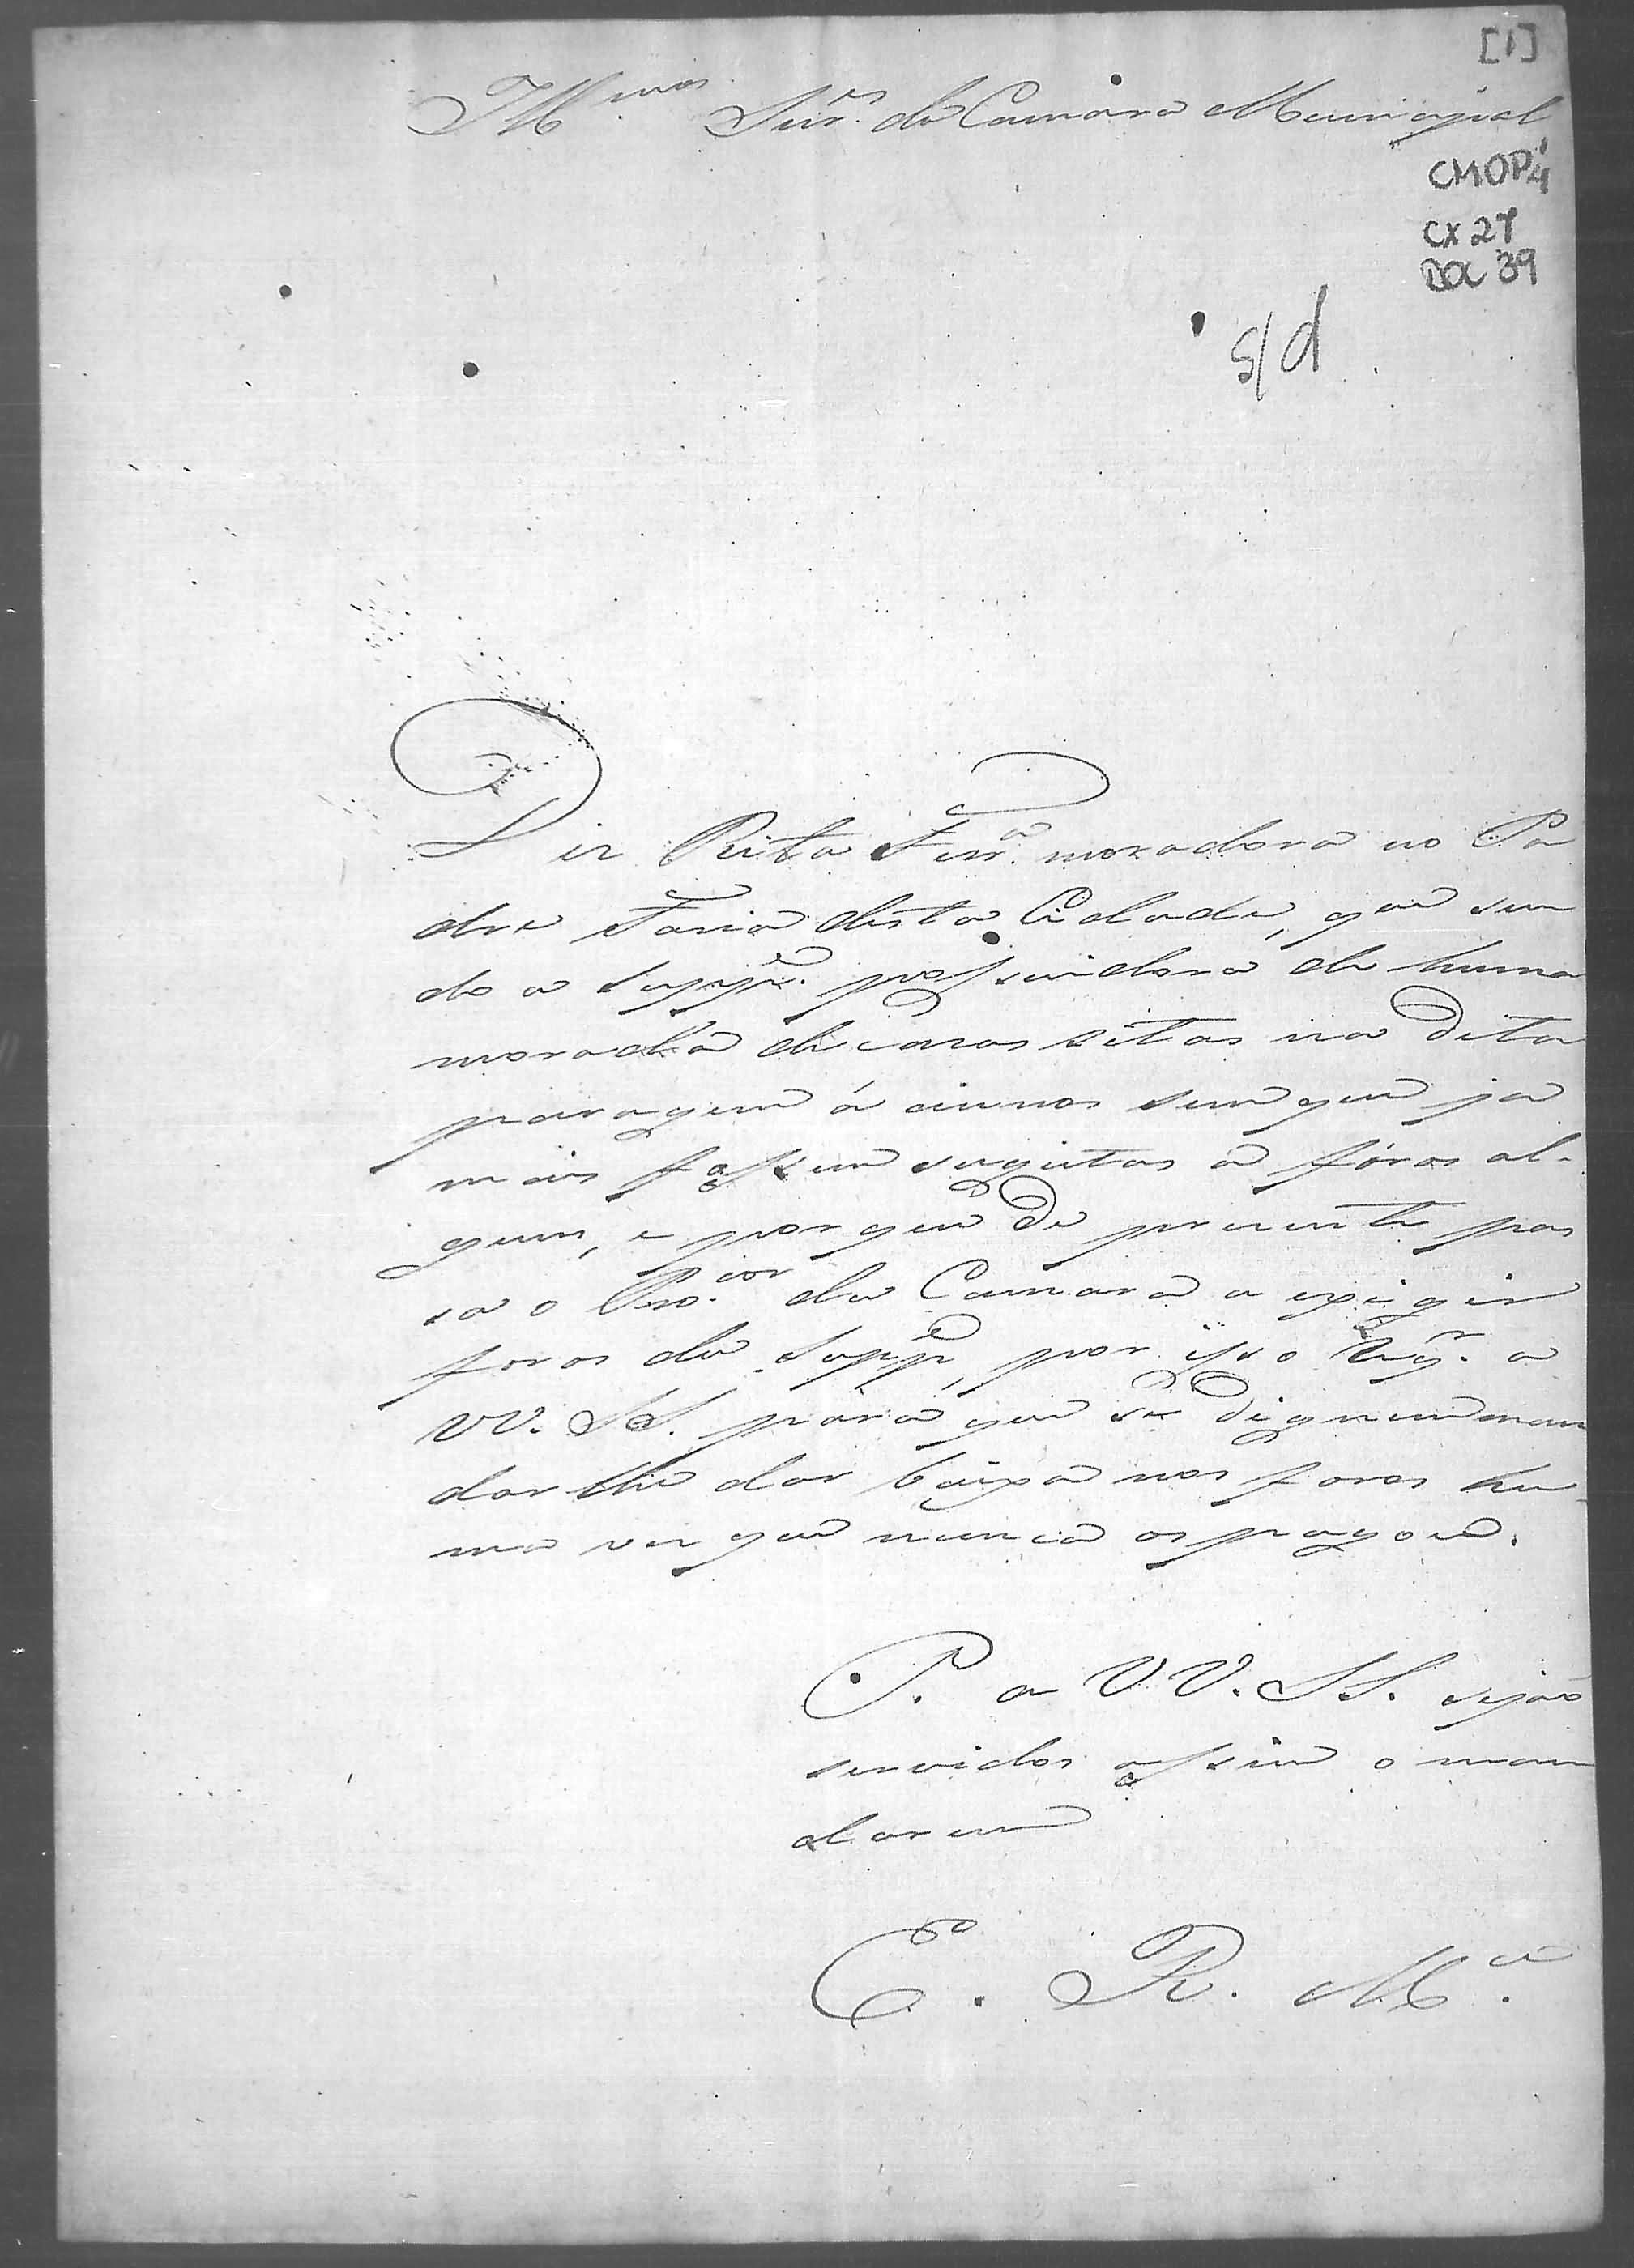 [1]
Illmos Snres da Camara Municipal
CMOP 4
CX 27
DOC 39
s/d
Diz Rita Ferra moradora no Pa
dre Faria desta Cidade, que sen
do a suppe. possuidora de huma
morada de casas sitas na dita
paragem á annos sem que ja
mais fossem sugeitas a fóros al-
gum, e porque de prezente pas
sa o Procor da Camara a exigir
foros da Suppe, por isso Rqr. a
VV. SS. para que se dignem man
dar lhe dar baixa nos foros hu
ma vez que nunca os pagou.
P. a VV. SS. sejão
servidos assim o man
darem
E. R. Mce.